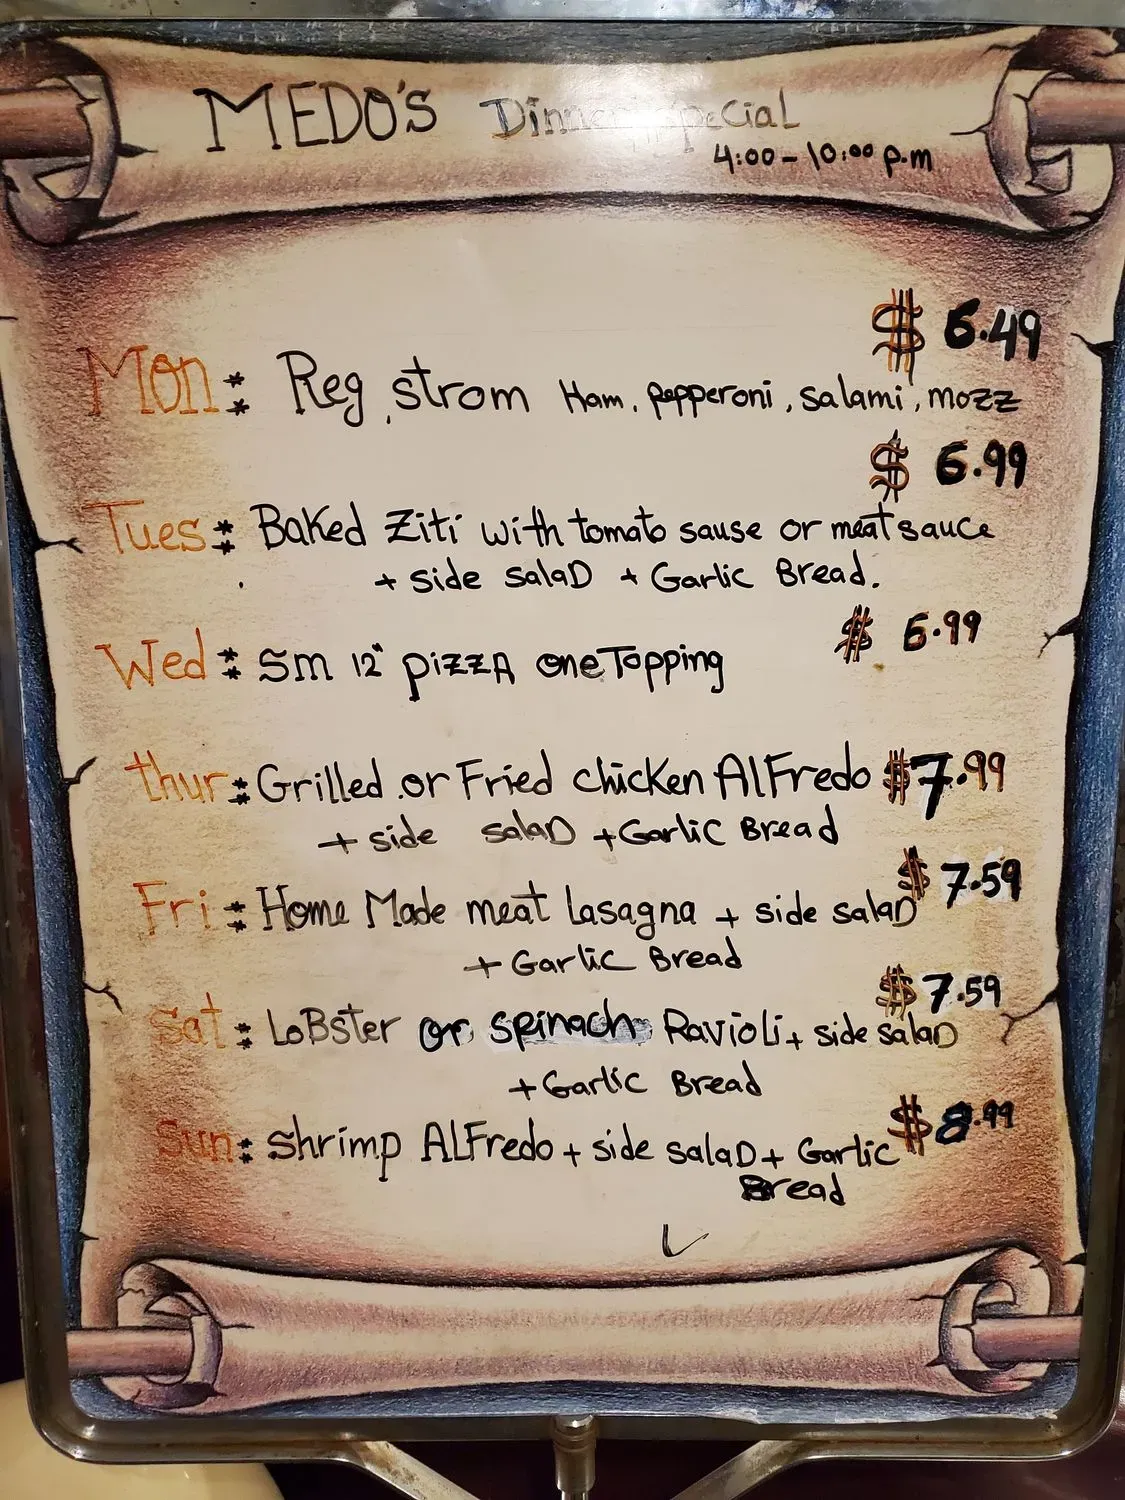 MEDO'S Dinner Special
4:00 - 10:00 p.m
$ 6.49
Mon: Reg, strom Ham, pepperoni, salami, mozz
$ 6.99
Tues: Baked Ziti with tomato sause or meat sauce
+ side salaD + Garlic Bread.
$ 6.99
Wed: Sm 12" pizzA one Topping
thur: Grilled or Fried chicken AlFredo $7.99
+ side salaD + Garlic Bread
$ 7.59
Fri: Home Made meat lasagna + side salaD
+ Garlic Bread
$ 7.59
Sat: LoBster or spinach Ravioli + side salaD
+ Garlic Bread
$8.99
Sun: Shrimp ALFredo + side salaD + Garlic
Bread